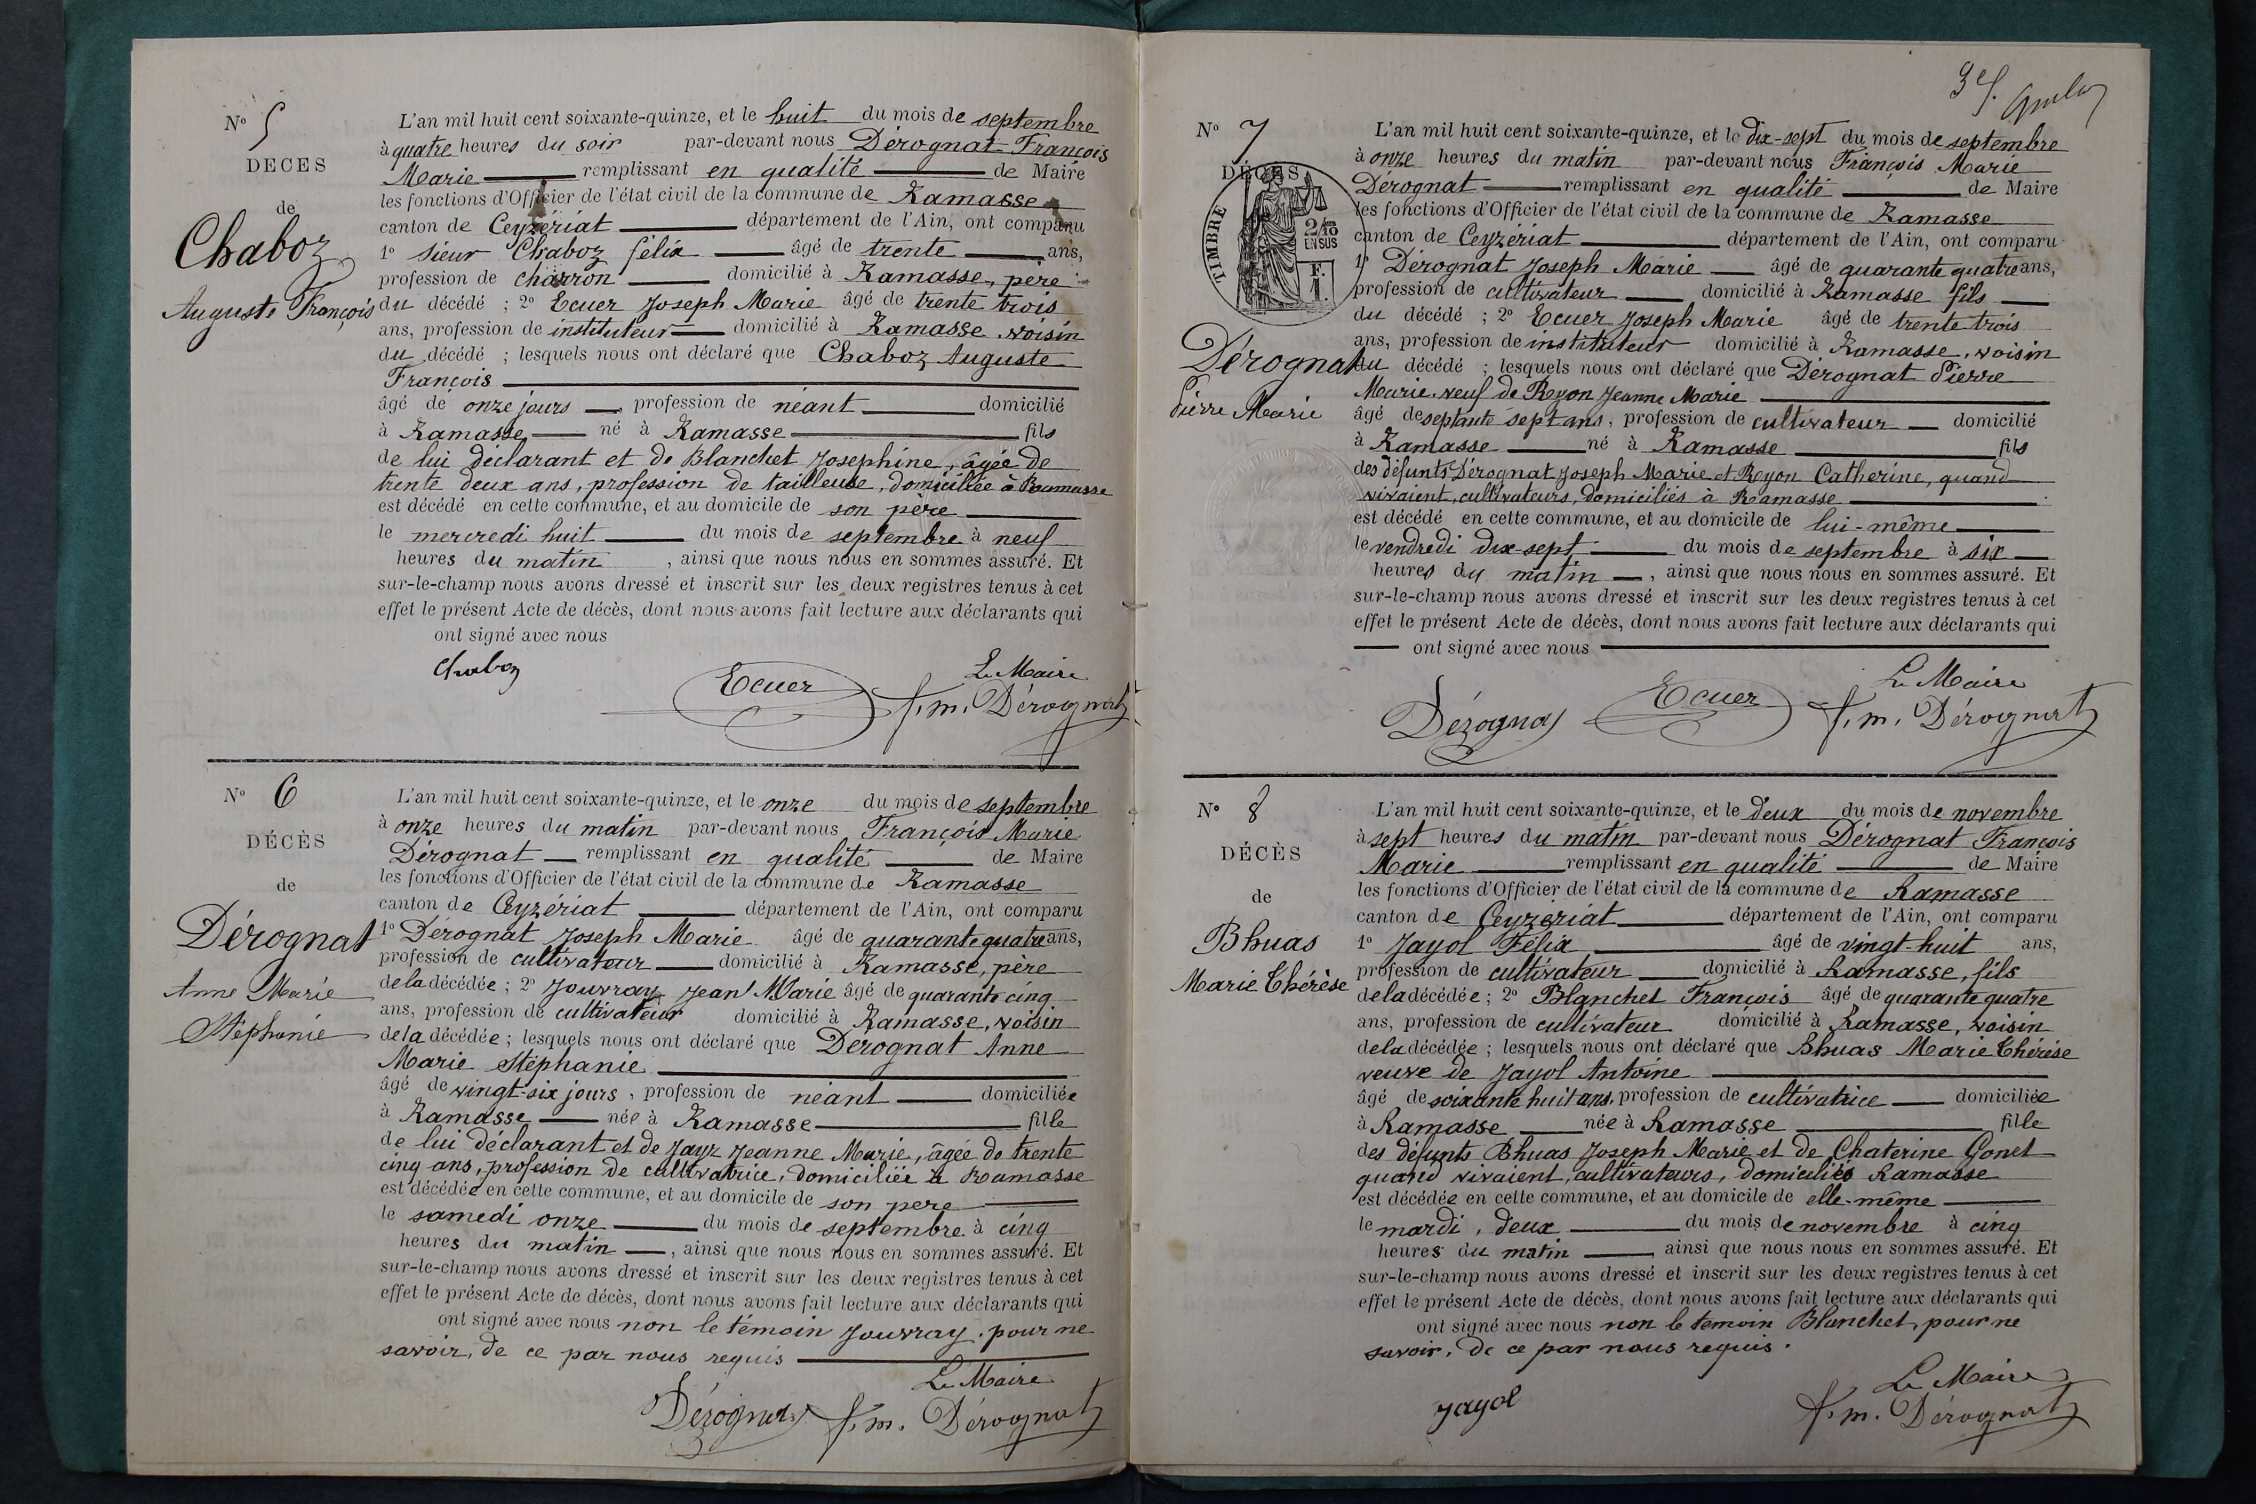 N° 5
DÉCÈS
de
Chaboz
Auguste François
L'an mil huit cent soixante-quinze, et le huit du mois de septembre
à quatre heures du soir par-devant nous Dérognat François
Marie remplissant en qualité de Maire
les fonctions d'Officier de l'état civil de la commune de Ramasse
canton de Ceyzériat département de l'Ain, ont comparu
1° sieur Chaboz félix âgé de trente ans,
profession de charron domicilié à Ramasse, père
du décédé ; 2° Ecuer Joseph Marie âgé de trente trois
ans, profession de instituteur domicilié à Ramasse, voisin
du décédé ; lesquels nous ont déclaré que Chaboz Auguste
François
âgé de onze jours, profession de néant domicilié
à Ramasse né à Ramasse fils
de lui déclarant et de Blanchet Josephine, âgée de
trente deux ans, profession de tailleuse, domiciliée à Ramasse
est décédé en cette commune, et au domicile de son père
le mercredi huit du mois de septembre à neuf
heures du matin, ainsi que nous nous en sommes assuré. Et
sur-le-champ nous avons dressé et inscrit sur les deux registres tenus à cet
effet le présent Acte de décès, dont nous avons fait lecture aux déclarants qui
ont signé avec nous
Chaboz
Ecuer
Le Maire
f. m. Dérognat
N° 6
DÉCÈS
de
Dérognat
Anne Marie
Stéphanie
L'an mil huit cent soixante-quinze, et le onze du mois de septembre
à onze heures du matin par-devant nous François Marie
Dérognat remplissant en qualité de Maire
les fonctions d'Officier de l'état civil de la commune de Ramasse
canton de Ceyzériat département de l'Ain, ont comparu
1° Dérognat Joseph Marie âgé de quarante quatre ans,
profession de cultivateur domicilié à Ramasse, père
de la décédée ; 2° Jouvray Jean Marie âgé de quarante cinq
ans, profession de cultivateur domicilié à Ramasse, voisin
de la décédée ; lesquels nous ont déclaré que Dérognat Anne
Marie Stéphanie
âgé de vingt-six jours, profession de néant domiciliée
à Ramasse née à Ramasse fille
de lui déclarant et de Jayr Jeanne Marie, âgée de trente
cinq ans, profession de cultivatrice, domiciliée à Ramasse
est décédée en cette commune, et au domicile de son père
le samedi onze du mois de septembre à cinq
heures du matin, ainsi que nous nous en sommes assuré. Et
sur-le-champ nous avons dressé et inscrit sur les deux registres tenus à cet
effet le présent Acte de décès, dont nous avons fait lecture aux déclarants qui
ont signé avec nous non le témoin Jouvray, pour ne
savoir, de ce par nous requis
Le Maire
Dérognat
f. m. Dérognat
N° 7
DÉCÈS
TIMBRE
2/10 EN SUS
F. 1.
Dérognat
Pierre Marie
L'an mil huit cent soixante-quinze, et le dix-sept du mois de septembre
à onze heures du matin par-devant nous François Marie
Dérognat remplissant en qualité de Maire
les fonctions d'Officier de l'état civil de la commune de Ramasse
canton de Ceyzériat département de l'Ain, ont comparu
1° Dérognat Joseph Marie âgé de quarante quatre ans,
profession de cultivateur domicilié à Ramasse fils
du décédé ; 2° Ecuer Joseph Marie âgé de trente trois
ans, profession de instituteur domicilié à Ramasse, voisin
du décédé ; lesquels nous ont déclaré que Dérognat Pierre
Marie veuf de Reyon Jeanne Marie
âgé de septante sept ans, profession de cultivateur domicilié
à Ramasse né à Ramasse fils
des défunts Dérognat Joseph Marie et Reyon Catherine, quand
vivaient, cultivateurs, domiciliés à Ramasse
est décédé en cette commune, et au domicile de lui-même
le vendredi dix-sept du mois de septembre à six
heures du matin, ainsi que nous nous en sommes assuré. Et
sur-le-champ nous avons dressé et inscrit sur les deux registres tenus à cet
effet le présent Acte de décès, dont nous avons fait lecture aux déclarants qui
ont signé avec nous
Le Maire
Dérognat
Ecuer
f. m. Dérognat
N° 8
DÉCÈS
de
Bhuas
Marie Thérèse
L'an mil huit cent soixante-quinze, et le deux du mois de novembre
à sept heures du matin par-devant nous Dérognat François
Marie remplissant en qualité de Maire
les fonctions d'Officier de l'état civil de la commune de Ramasse
canton de Ceyzériat département de l'Ain, ont comparu
1° Jayol Félix âgé de vingt-huit ans,
profession de cultivateur domicilié à Ramasse, fils
de la décédée ; 2° Blanchet François âgé de quarante quatre
ans, profession de cultivateur domicilié à Ramasse, voisin
de la décédée ; lesquels nous ont déclaré que Bhuas Marie Thérèse
veuve de Jayol Antoine
âgé de soixante huit ans, profession de cultivatrice domiciliée
à Ramasse née à Ramasse fille
des défunts Bhuas Joseph Marie et de Chaterine Gonet
quand vivaient, cultivateurs, domiciliés Ramasse
est décédée en cette commune, et au domicile de elle-même
le mardi, deux du mois de novembre à cinq
heures du matin ainsi que nous nous en sommes assuré. Et
sur-le-champ nous avons dressé et inscrit sur les deux registres tenus à cet
effet le présent Acte de décès, dont nous avons fait lecture aux déclarants qui
ont signé avec nous non le temoin Blanchet, pour ne
savoir, de ce par nous requis.
Le Maire
Jayol
f. m. Dérognat